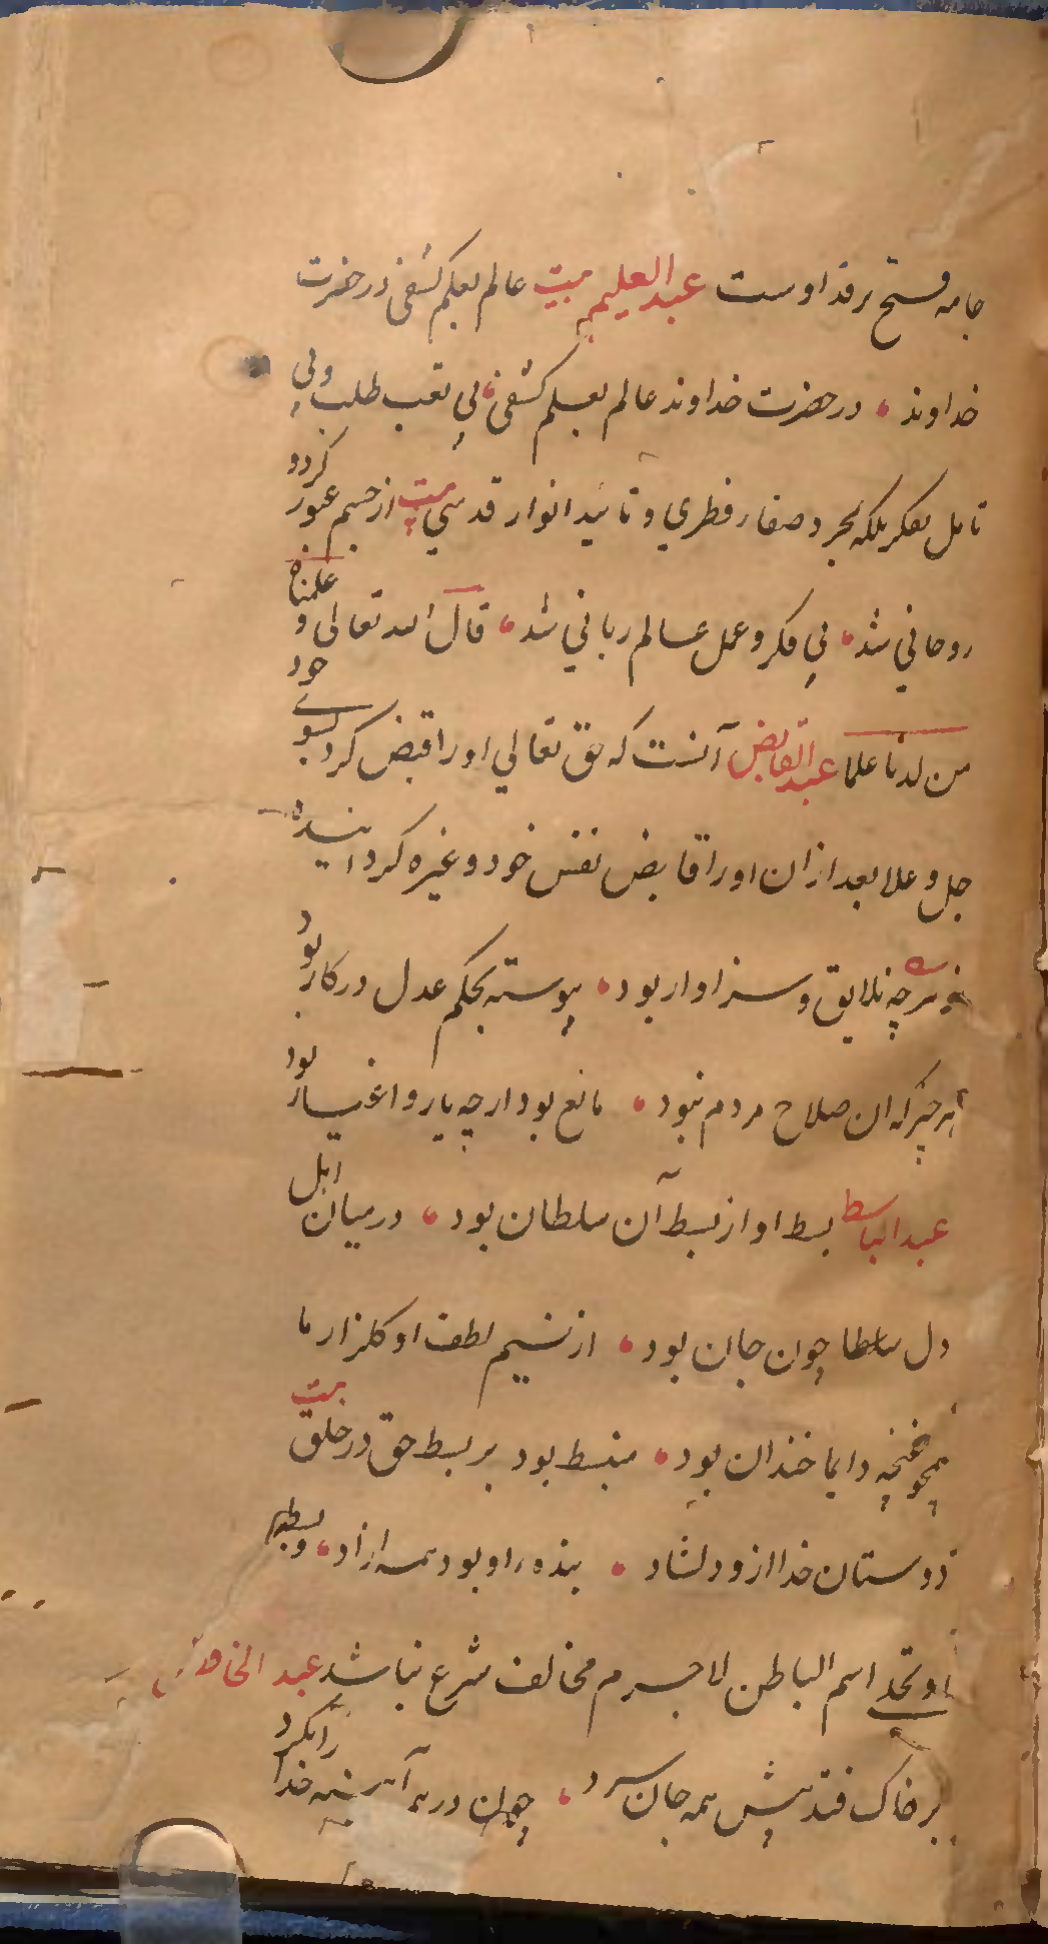 جامه فتح بر قد اوست عبد العلیم بیت عالم بعلم کشفی در حضرت
خداوند در حضرت خداوند عالم بعلم کشفی بی تعب طلب و بی
تامل بفکر بلکه بمجرد صفاء فطری و تائید انوار قدسی بیت از جسم عبور کرد و
روحانی شد بی فکر و عمل عالم ربانی شد قال الله تعالی و علمناه
من لدنا علما عبد القابض آنست که حق تعالی او را قبض کرد بسوی خود
جل و علا بعد از ان او را قابض نفس خود و غیره گردانیده
هرچه نلایق و سزاوار بود پیوسته بحکم عدل در کار بود
هر چیز که ان صلاح مردم نبود مانع بود ارچه یار و اغیار بود
عبد الباسط بسط او از بسط آن سلطان بود در میان اهل
دل چون جان بود از نسیم لطف او گلزار ما
همچو غنچه دایما خندان بود منبسط بود بر بسط حق در خلق بیت
دوستان خدا ازو دلشاد بنده را و بود همه ازاد و بسط
او اسم الباطن لاجرم مخالف شرع نباشد عبد الخافض
بر خاک فتد پیش همه جان سپرد چون در همه آئینه خدا را نگرد